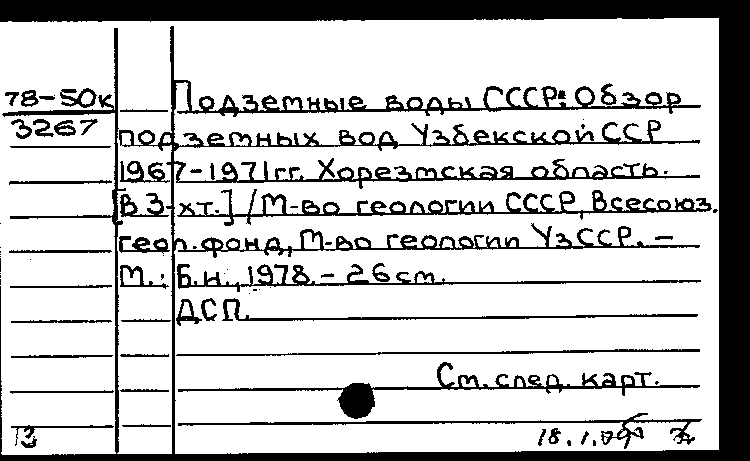 78-50к
3267
Подземные воды СССР: Обзор
подземных вод Узбекской ССР
1967-1971гг. Хорезмская область.
[В 3-хт.] / М-во геологии СССР, Всесоюз.
геол. фонд, М-во геологии УзССР. –
М.: Б.и., 1978. – 26см.
ДСП.
См. след. карт.
13
18.1.